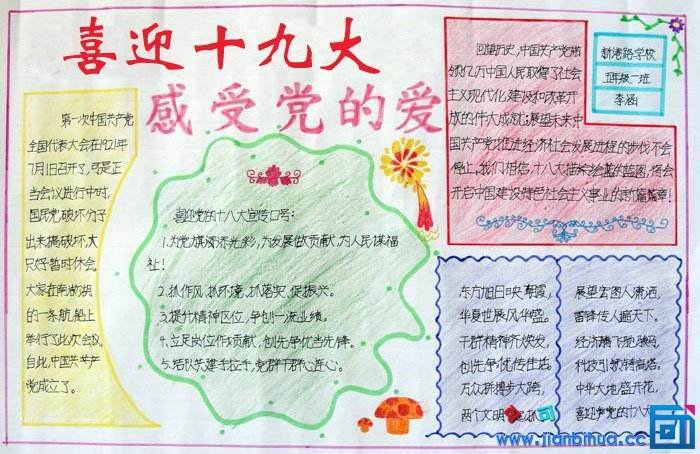 喜迎十九大
感受党的爱
新港路学校
五年级一班
李涵
第一次中国共产党
全国代表大会在1921年
7月1日召开了,可是正
当会议进行中时,
国民党破坏分子
出来搞破坏,大
只好暂时休会,
大家在南湖湖
的一条航船上
举行了此次会议,
自此,中国共产
党成立了。
喜迎党的十八大宣传口号:
1.为党旗添光彩,为发展做贡献,为人民谋福
祉!
2.抓作风,抓环境,抓落实,促振兴。
3.提升精神区位,争创一流业绩。
4.立足岗位作贡献,创先争优当先锋。
5.结队共建手拉手,党群干群心连心。
回望历史,中国共产党带
领亿万中国人民取得了社会
主义现代化建设和改革开
放的伟大成就;展望未来,中
国共产党推进经济社会发展进程的步伐不会
停止,我们相信,十八大描来绘蓝的蓝图,将会
开启中国建设特色社会主义事业的新篇章!
东方旭日映霞,
华夏世展风华盛。
干群精神齐焕发,
创先争优传佳话。
万众拼搏步大跨,
两个文明起抓
展望宏图人潇洒,
雷锋传人遍天下。
经济腾飞驰骏马,
科技引领铸高塔。
中华大地盛开花,
喜迎党的十八大
www.jianbihua.cc